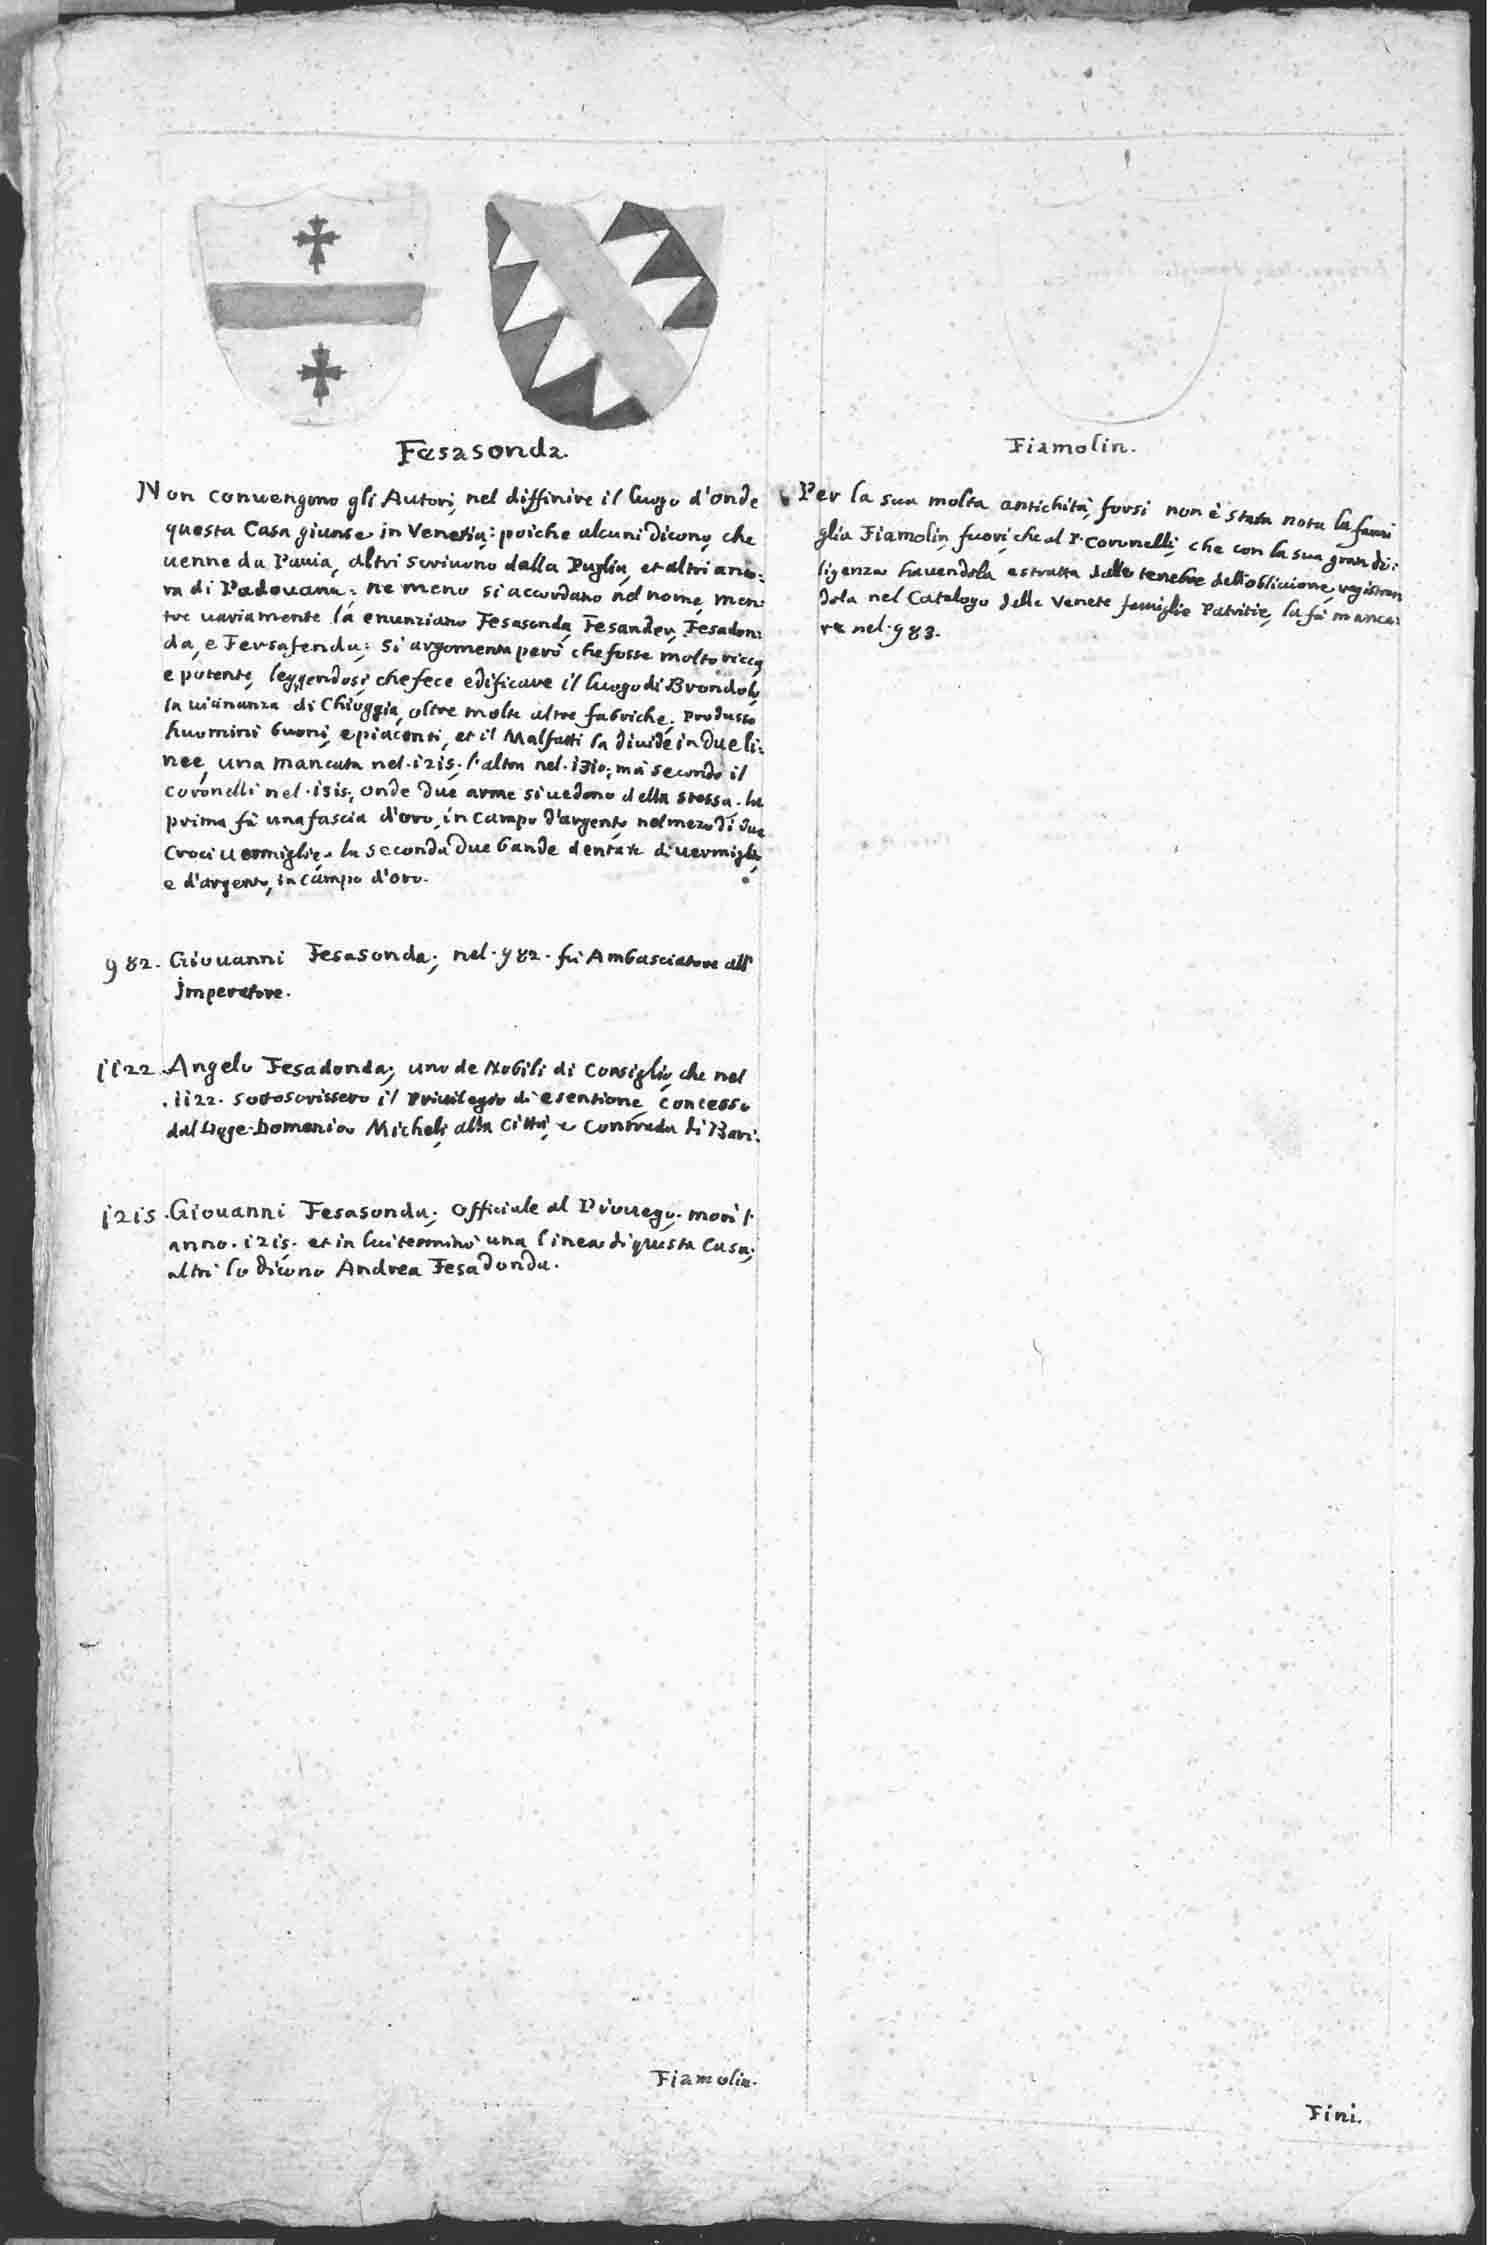 Fesasonda.
Non convengono gli Autori, nel diffinire il luogo d'onde
questa Casa giunse in Venetia; poiche alcuni dicono, che
uenne da Pauia, altri scriuono dalla Puglia, et altri anco:
ra di Padouana; ne meno si accordano nel nome, men
tre uariamente la enunziano Fesasonda, Fesander, Fesadon:
da, e Fersafenda; si argomenta però che fosse molto ricca,
e potente, leggendosi che fece edificare il luogo di Brondolo,
in uicinanza di Chioggia, oltre molte altre fabriche; Produsse
huomini buoni, e piacenti, et il Malfatti la diuide in due li:
nee, una mancata nel .1215. l'altra nel .1310; mà secondo il
Coronelli nel .1515; onde due arme si uedono della stessa. la
prima fà una fascia d'oro, in campo d'argento, nel mezo di due
Croci uermiglie. la seconda due bande dentate di uermiglio,
e d'argento, in campo d'oro.
982. Giouanni Fesasonda; nel .982. fù Ambasciatore all'
Imperatore.
1122. Angelo Fesadonda; uno de Nobili di Consiglio, che nel
.1122. sottoscrissero il Priuilegio di esentione, concesso
dal Doge Domenico Micheli, alla Città, e Contrada di Bari.
1215. Giouanni Fesasonda; Officiale al Piouego. morì l'
anno .1215. et in lui terminò una linea di questa Casa;
altri lo dicono Andrea Fesadonda.
Fiamolin.
Fiamolin.
Per la sua molta antichità, forsi non è stata nota la fami
glia Fiamolin, fuori, che al P. Coronelli, che con la sua gran di:
ligenza hauendola estratta dalle tenebre dell'obliuione, registran
dola nel Catalogo delle Venete famiglie Patritie, la fà manca:
re nel .983.
Fini.